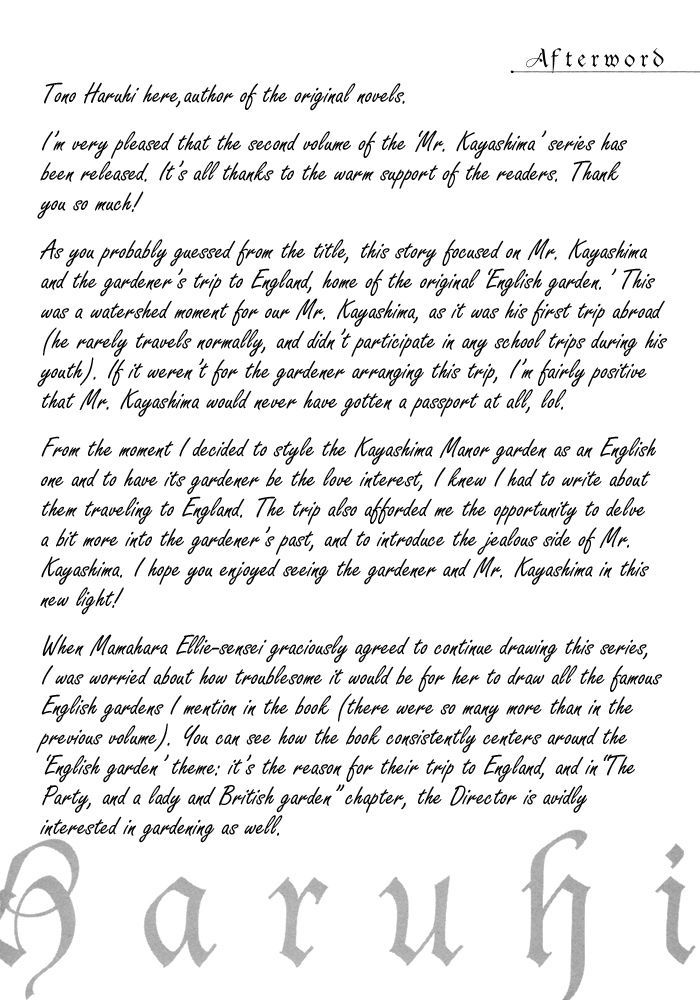 Afterword
Tono Haruhi here,author of the original novels.
I'm very pleased that the second volume of the 'Mr. Kayashima' series has
been released. It's all thanks to the warm support of the readers. Thank
you so much!
As you probably guessed from the title, this story focused on Mr. Kayashima
and the gardener's trip to England, home of the original 'English garden.' This
was a watershed moment for our Mr. Kayashima, as it was his first trip abroad
(he rarely travels normally, and didn't participate in any school trips during his
youth). If it weren't for the gardener arranging this trip, I'm fairly positive
that Mr. Kayashima would never have gotten a passport at all, lol.
From the moment I decided to style the Kayashima Manor garden as an English
one and to have its gardener be the love interest, I knew I had to write about
them traveling to England. The trip also afforded me the opportunity to delve
a bit more into the gardener's past, and to introduce the jealous side of Mr.
Kayashima. I hope you enjoyed seeing the gardener and Mr. Kayashima in this
new light!
When Mamahara Ellie-sensei graciously agreed to continue drawing this series,
I was worried about how troublesome it would be for her to draw all the famous
English gardens I mention in the book (there were so many more than in the
previous volume). You can see how the book consistently centers around the
'English garden' theme: it's the reason for their trip to England, and in "The
Party, and a lady and British garden" chapter, the Director is avidly
interested in gardening as well.
Haruhi